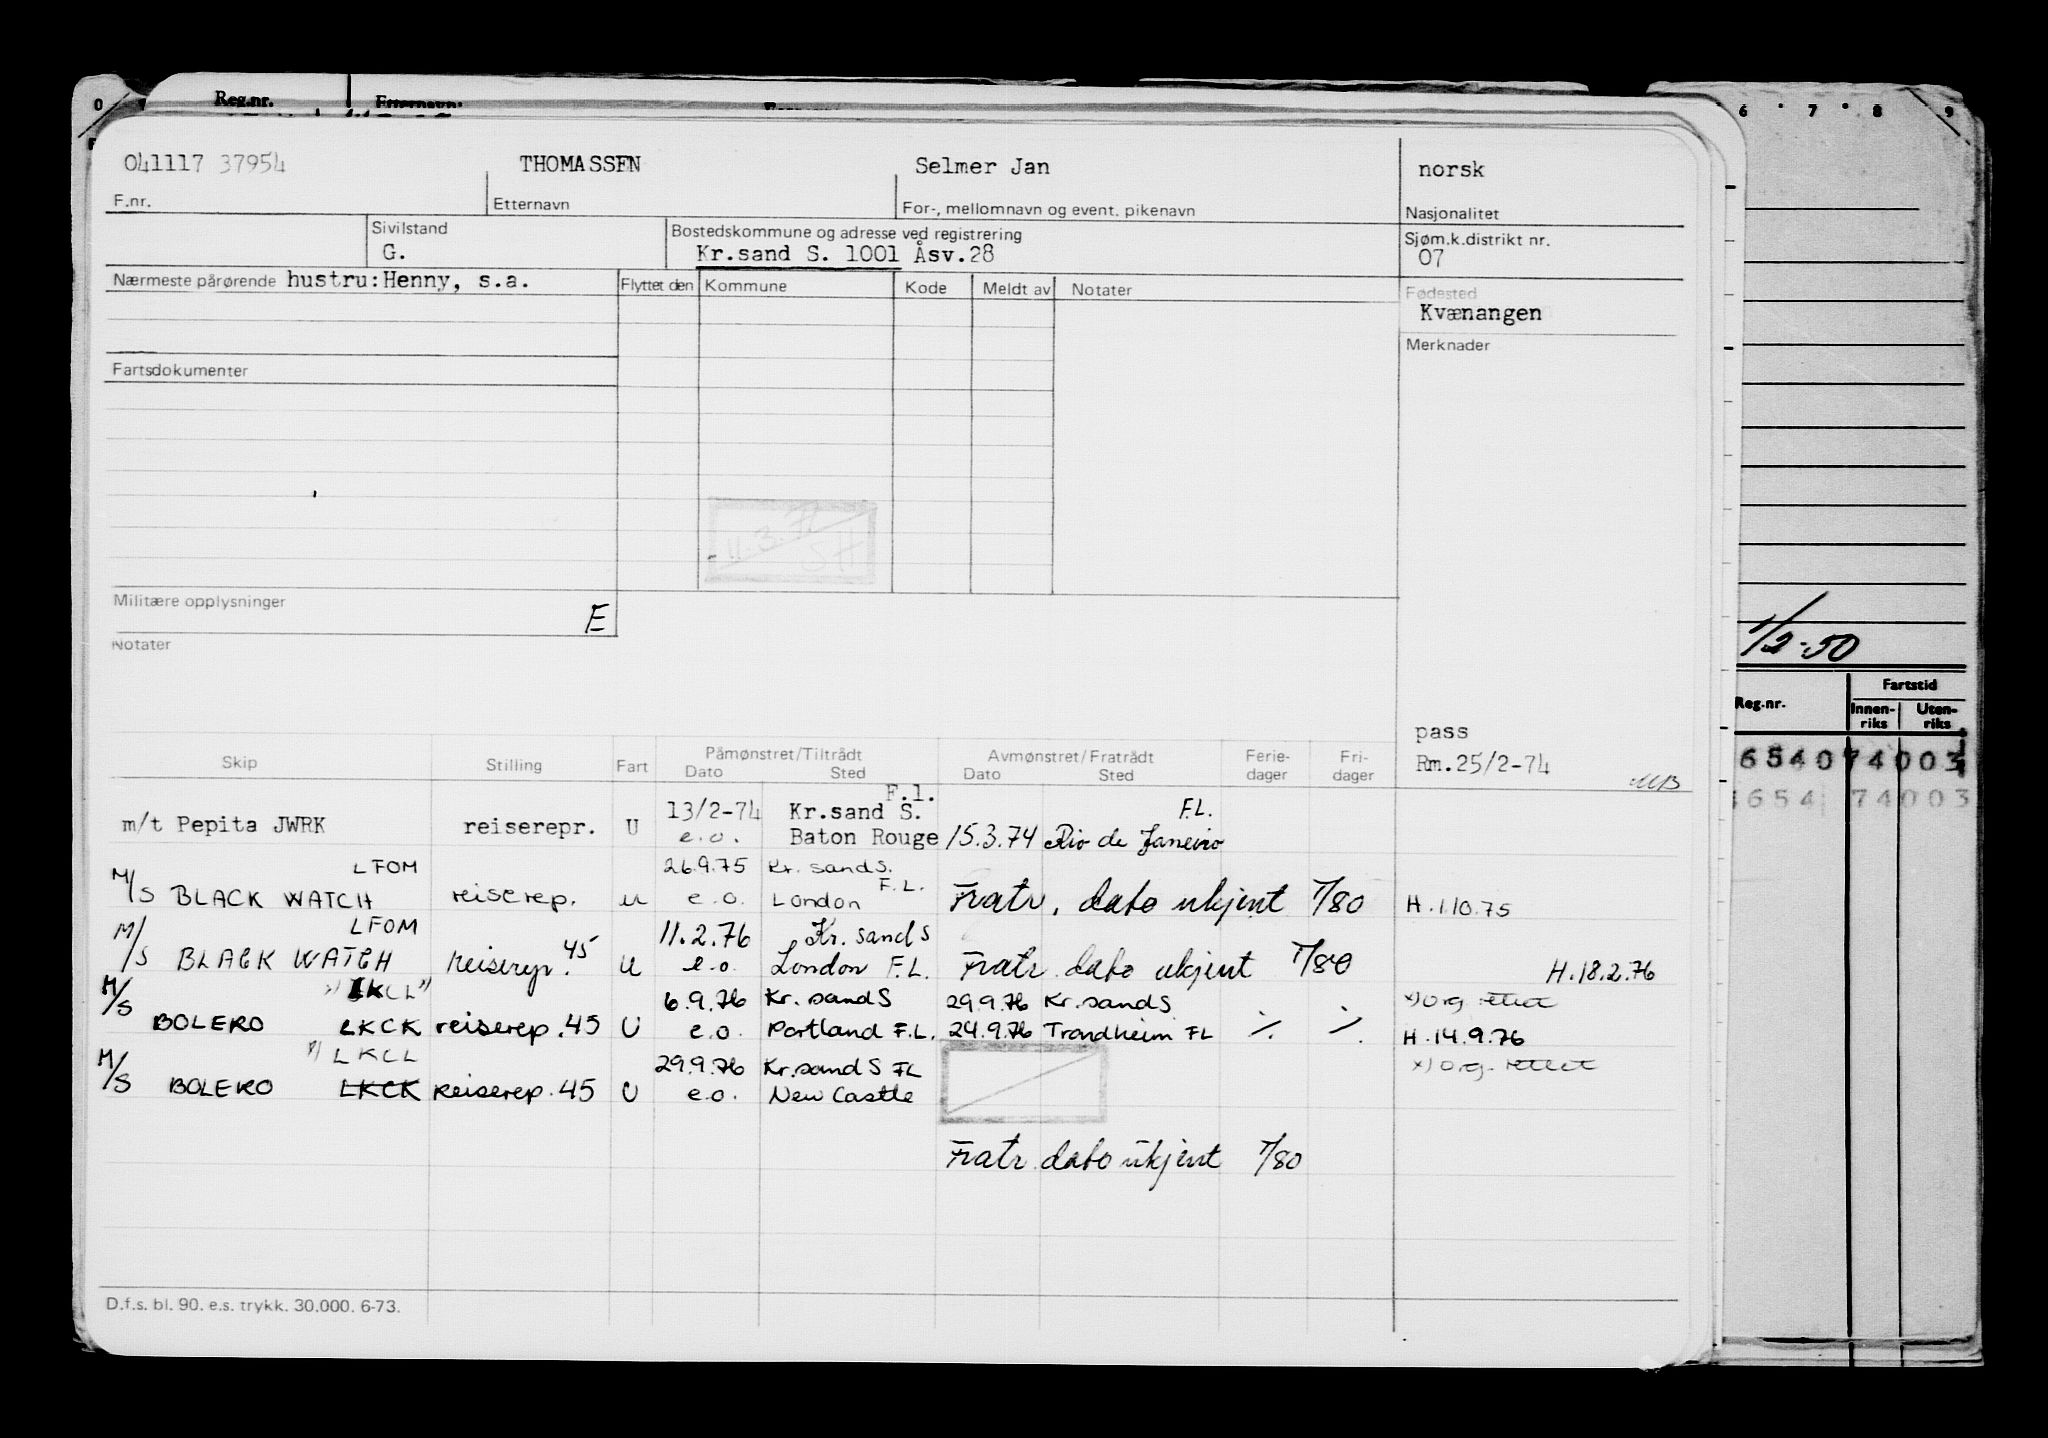 0 6 7 8 9
Reg.nr. Etternavn:
041117 37954 THOMASSEN Selmer Jan norsk
F.nr. Etternavn For-, mellomnavn og event. pikenavn Nasjonalitet
Sivilstand Bostedskommune og adresse ved registrering Sjøm.k.distrikt nr.
G. Kr.sand S. 1001 Åsv.28 07
Nærmeste pårørende hustru:Henny, s.a. Flyttet den Kommune Kode Meldt av Notater Fødested
Kvænangen
Merknader
Fartsdokumenter
11.3.76
SH
Militære opplysninger E
Notater
1/2-50
Reg.nr. Fartstid
Innen-riks Uten-riks
pass
Skip Stilling Fart Påmønstret/Tiltrådt Avmønstret/Fratrådt Ferie-dager Fri-dager
Dato Sted Dato Sted Rm.25/2-74 MB
65407400 3
654 74003
F.l.
13/2-74 Kr.sand S. F.L.
m/t Pepita JWRK reiserepr. U e.o. Baton Rouge 15.3.74 Rio de Janeiro
LFOM 26.9.75 Kr. sand S.
F.L.
M/S BLACK WATCH reiserep. u e.o. London Fratr. dato ukjent 7/80 H.1.10.75
LFOM 11.2.76 Kr. sand S
M/S BLACK WATCH reiserep. 45 u e.o. London F.L. Fratr dato ukjent 7/80 H.18.2.76
x) LKCL") 6.9.76 Kr. sand S 29.9.76 Kr. sand S x) org. rettet
M/S BOLERO LKCK reiserep. 45 U e.o. Portland F.L. 24.9.76 Trondheim FL ./. ./. H.14.9.76
x) LKCL 29.9.76 Kr.sand S FL x) org. rettet
M/S BOLERO LKCK reiserep. 45 U e.o. New Castle
Fratr dato ukjent 7/80
D.f.s. bl. 90. e.s. trykk. 30.000. 6-73.